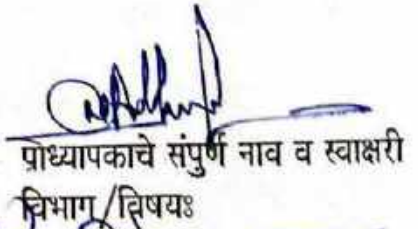 प्राध्यापकाचे संपुर्ण नाव व स्वाक्षरी
विभाग/विषयः